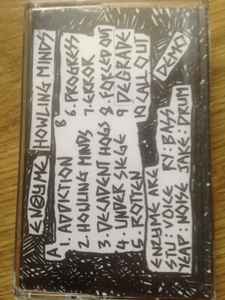 ENZYME HOWLING MINDS
A
1. ADDICTION
2. HOWLING MINDS
3. DECADENT HOGS
4. UNDER SIEGE
5. ROTTEN
B
6. PROGRESS
7. ERROR
8. FORCED OUT
9. DEGRADE
10. CALL OUT
ENZYME ARE
STU: VOICE RY: BASS
SEAP: NOISE JAKE: DRUM
DEMO